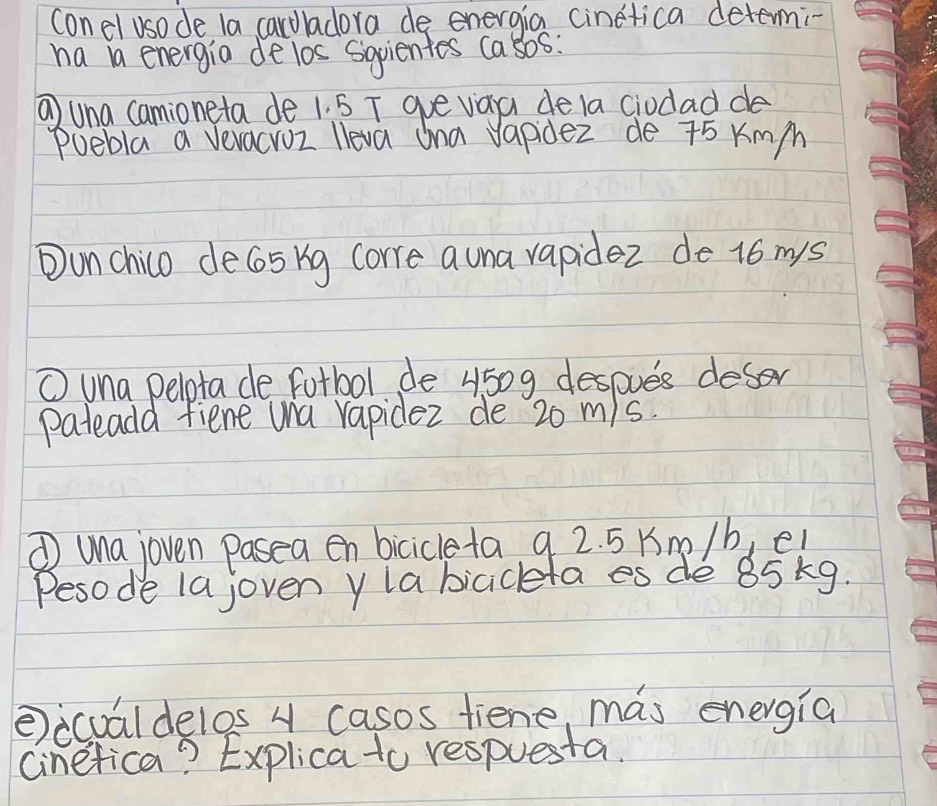 con el uso de la carculadora de energía cinética determi-
na la energía de los siguientes casos:
a) una camioneta de 1.5 T que viaja de la ciudad de
Puebla a Veracruz lleva una rapidez de 75 Km/h
b) un chico de 65 kg corre a una rapidez de 16 m/s
c) una pelota de futbol de 450g después de ser
pateada tiene una rapidez de 20 m/s.
d) una joven pasea en bicicleta a 2.5 Km/h, el
Peso de la joven y la bicicleta es de 85 kg.
e) ¿cuál de los 4 casos tiene más energía
cinética? Explica tu respuesta.